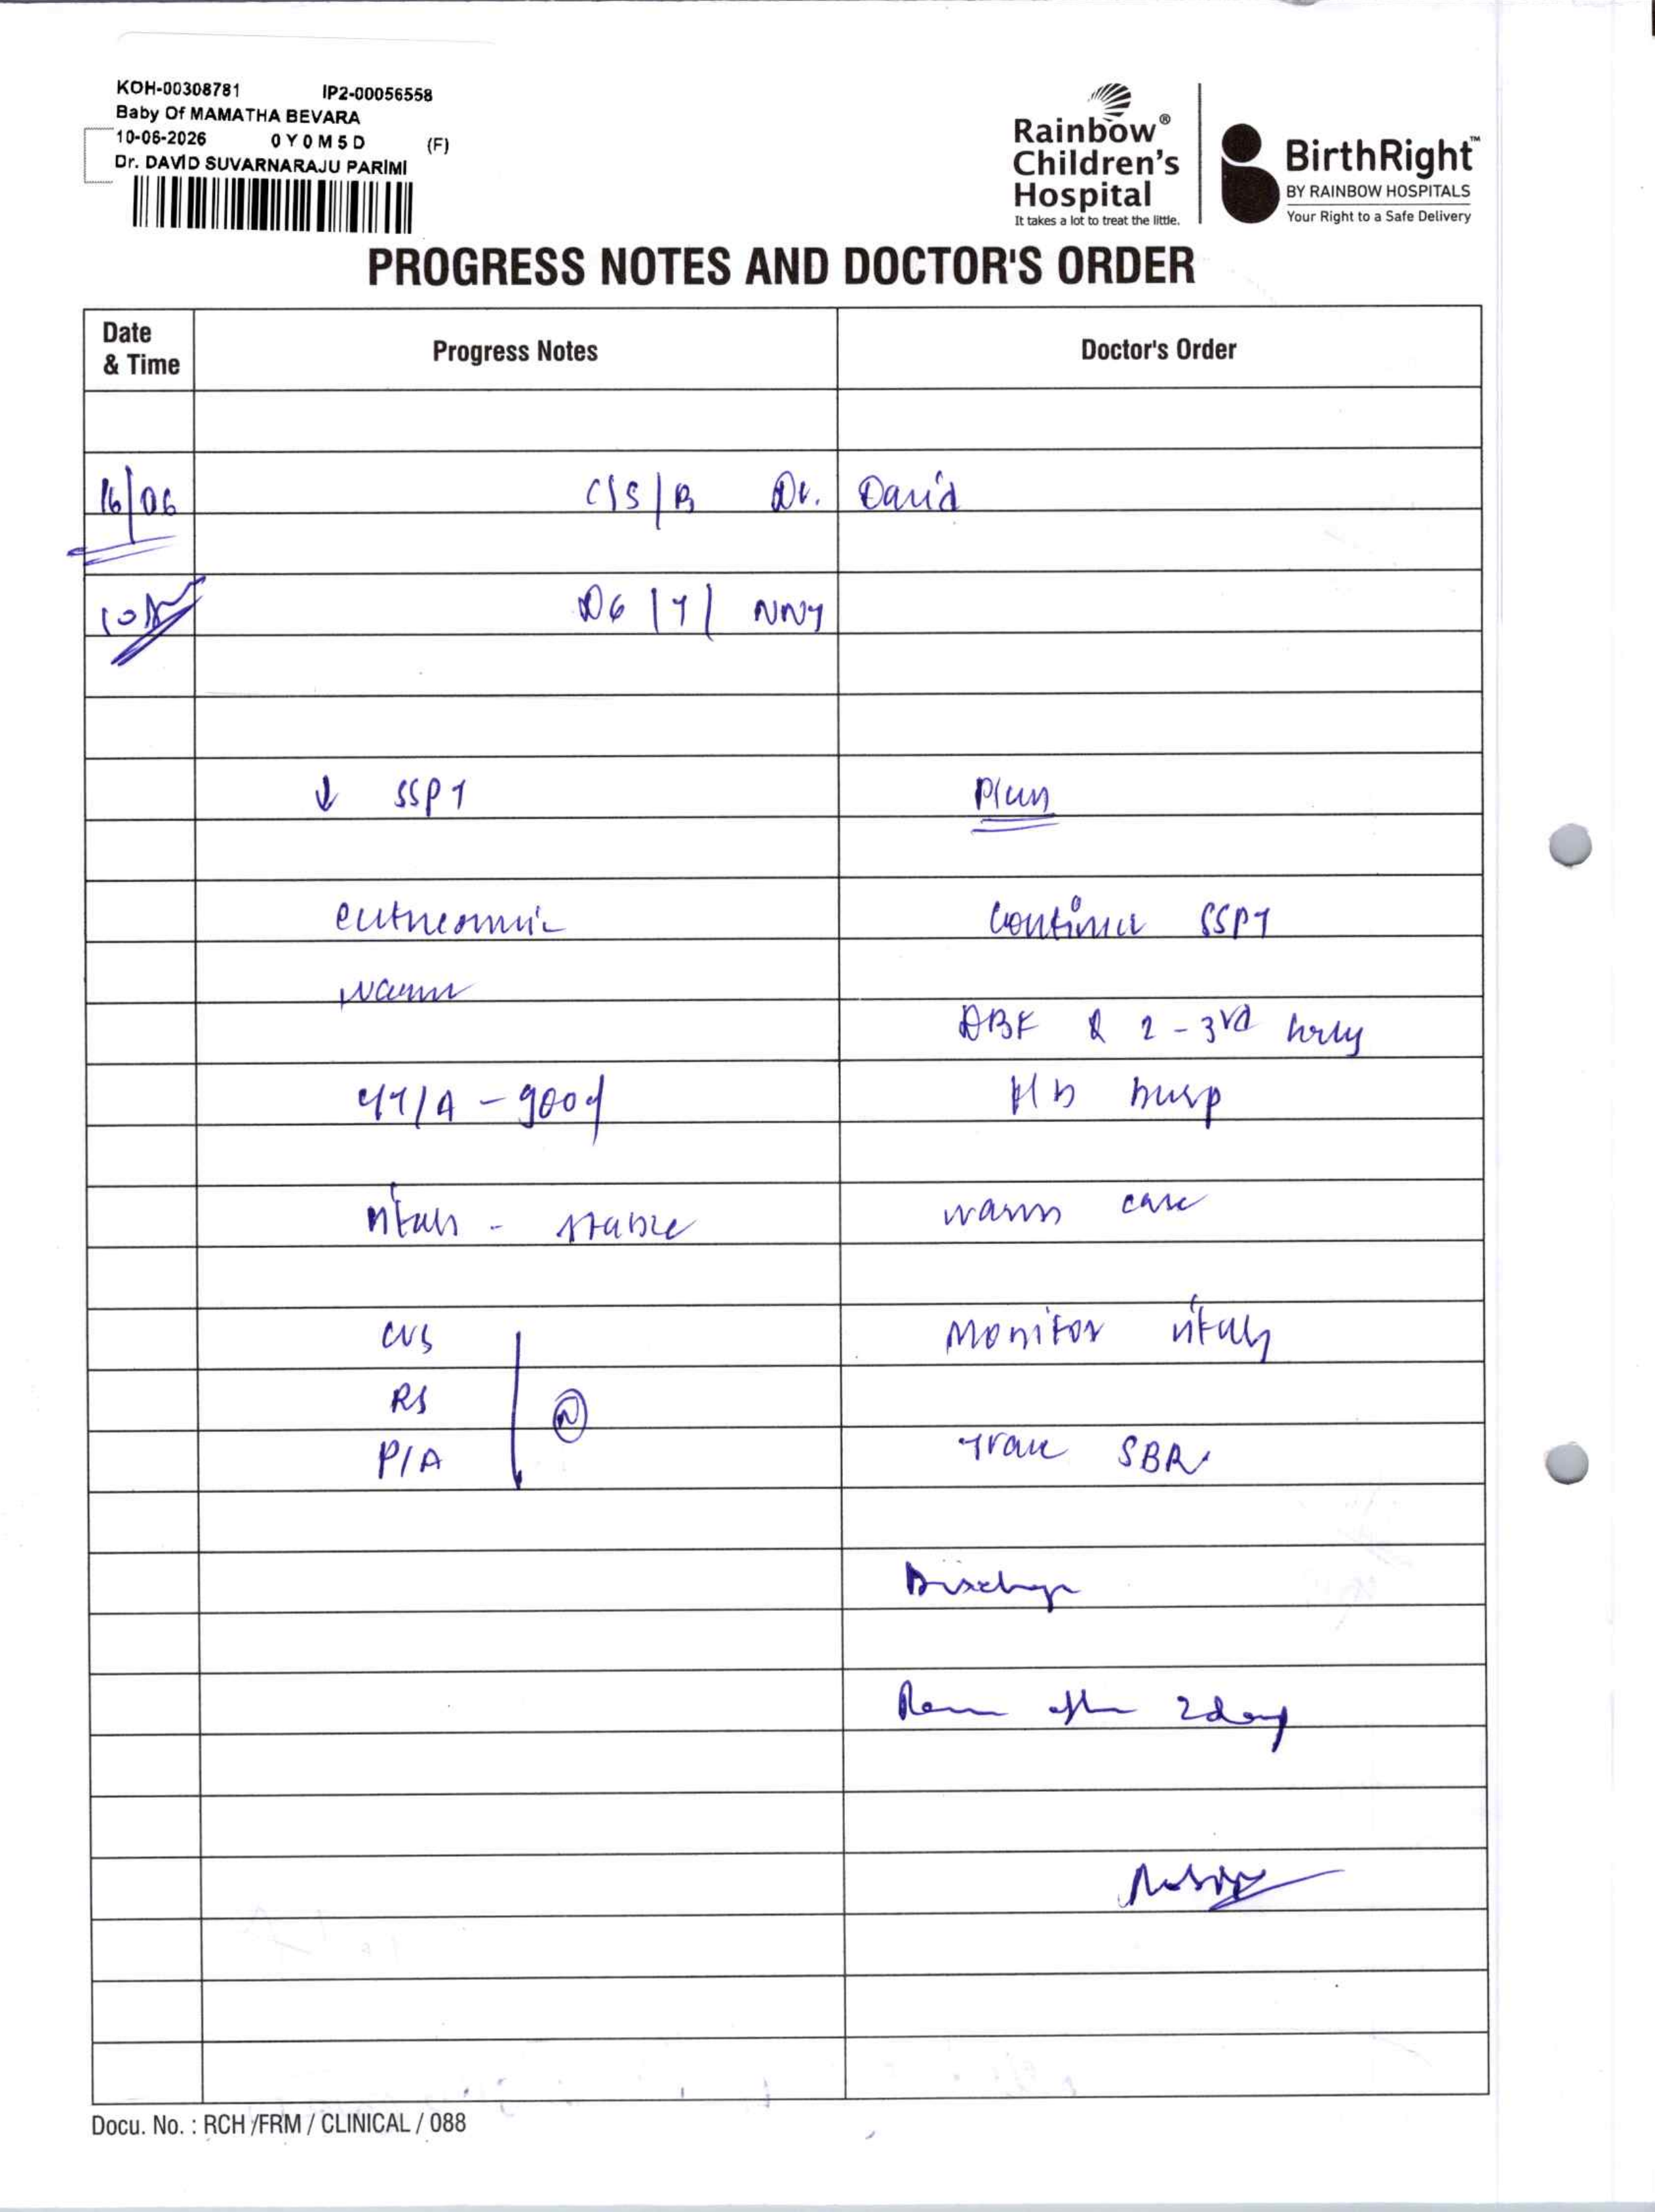 KOH-00308781 IP2-00056558
Baby Of MAMATHA BEVARA
10-06-2026 0Y0M5D (F)
Dr. DAVID SUVARNARAJU PARIMI
Rainbow®
Children's
Hospital
It takes a lot to treat the little.
BirthRight™
BY RAINBOW HOSPITALS
Your Right to a Safe Delivery
PROGRESS NOTES AND DOCTOR'S ORDER
Date & Time Progress Notes Doctor's Order
16/06 C/S/B Dr. David
D6 / T / NNJ
↓ SSPT Plan
euthermic Continue SSPT
warm
DBF 2-3rd hrly
C/T/A - good f/b burp
vitals - stable warm care
CVS Monitor vitals
RS (N)
P/A Trace SBR
Discharge
Review after 2 days
Docu. No. : RCH /FRM / CLINICAL / 088